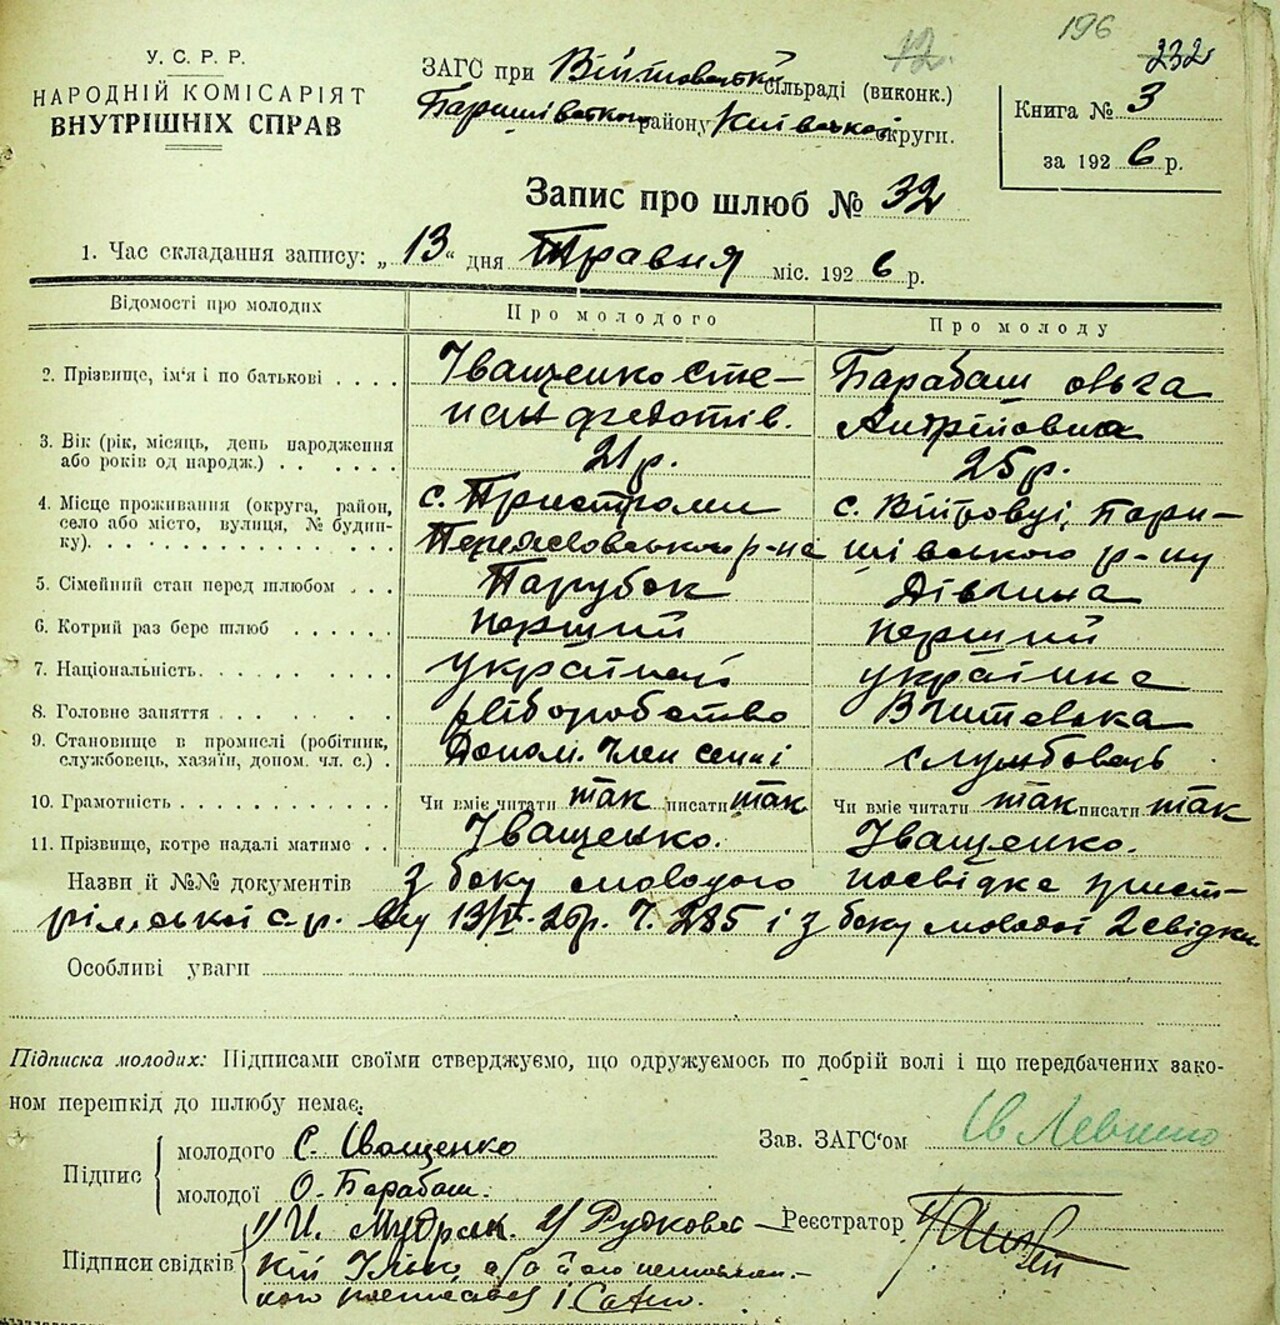 196
12
232
У. С. Р. Р.
НАРОДНІЙ КОМІСАРІЯТ
ВНУТРІШНІХ СПРАВ
ЗАГС при Війтовецькій сільраді (виконк.)
Баришівського району Київської округи.
Книга № 3
за 1926 р.
Запис про шлюб № 32
1. Час складання запису: „13“ дня Травня міс. 1926 р.
Відомості про молодих Про молодого Про молоду
2. Прізвище, ім'я і по батькові . . . . Іващенко Сте- Барабаш Ольга
пан Федотів. Андріївна
3. Вік (рік, місяць, день народження
або років од народж.) . . . . . . 21 р. 25 р.
4. Місце проживання (округа, район, с. Пристроми с. Війтовці, Бари-
село або місто, вулиця, № будин-
ку). . . . . . . . . . . . . . . Переясловського р-на шівського р-ну
5. Сімейний стан перед шлюбом . . . Парубок Дівчина
6. Котрий раз бере шлюб . . . . . . перший перший
7. Національність. . . . . . . . . . українець українка
8. Головне заняття . . . . . . . . хліборобство Вчителька
9. Становище в промислі (робітник,
службовець, хазяїн, допом. чл. с.) . Допом. член семьї службовець
10. Грамотність . . . . . . . . . . . . Чи вміє читати так писати так Чи вміє читати так писати так
11. Прізвище, котре надалі матиме . . Іващенко. Іващенко.
Назви й №№ документів з боку молодого посвідка прист-
рімської с.р. від 13/V-26р. Ч. 285 і з боку молодої 2 свідки
Особливі уваги
Підписка молодих: Підписами своїми стверджуємо, що одружуємось по добрій волі і що передбачених зако-
ном перешкід до шлюбу немає.
Підпис
молодого С. Іващенко
молодої О. Барабаш.
Зав. ЗАГС'ом
Підписи свідків
1) И. Мудрак. 2) Рудковс-
кій Ілько, а
Реєстратор